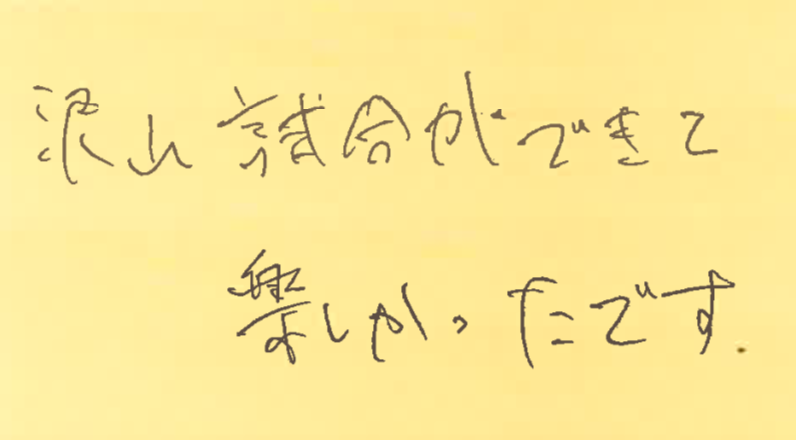 沢山試合ができて
楽しかったです.